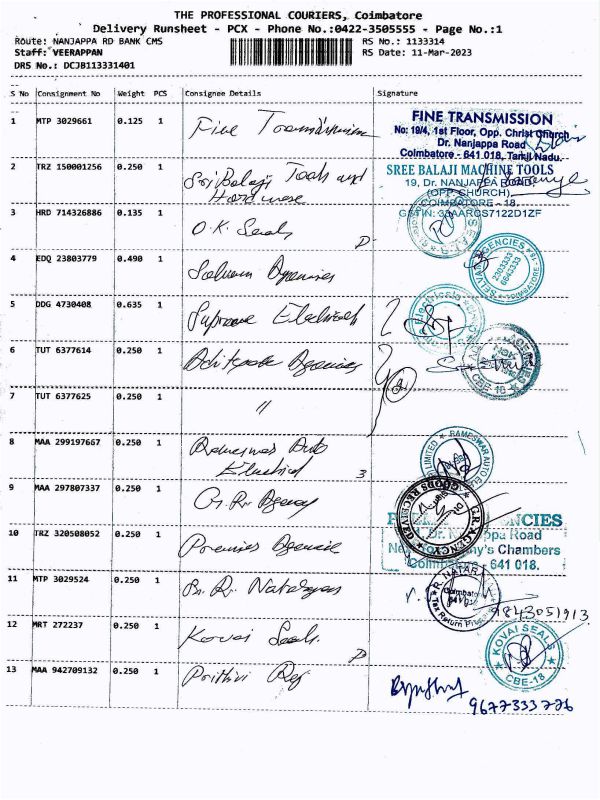 THE PROFESSIONAL COURIERS, Coimbatore
Delivery Runsheet - PCX - Phone No.:0422-3505555 - Page No.:1
Route: NANJAPPA RD BANK CMS
RS No.: 1133314
Staff: VEERAPPAN
RS Date: 11-Mar-2023
DRS No.: DCJB113331401
S No Consignment No Weight PCS Consignee Details Signature
1 MTP 3029661 0.125 1 Fine
FINE TRANSMISSION
No: 19/4, 1st Floor, Opp. Christ Church
Dr. Nanjappa Road
Coimbatore - 641 018, Tamil Nadu.
2 TRZ 150001256 0.250 1 Sri Balaji Tools and
Hardware
SREE BALAJI MACHINE TOOLS
19, Dr. NANJAPPA ROAD,
(OPP. CHURCH)
COIMBATORE - 18.
3 HRD 714326886 0.135 1 O.K. Seals D
4 EDQ 23803779 0.490 1 Agencies
AGENCIES
2303333
6643333
COIMBATORE
5 DDG 4730408 0.635 1 Supreme
6 TUT 6377614 0.250 1 Agencies
CBE-18
7 TUT 6377625 0.250 1 "
8 MAA 299197667 0.250 1 Rameswar Auto
Electrical 3
LIMITED RAMESWAR AUTO
9 MAA 297807337 0.250 1 G.R. Agency
G.R. AGENCY GOODS RECEIVED
10 TRZ 320508052 0.250 1 Premier Agencie
AGENCIES
Dr. Nanjappa Road
Chambers
Coimbatore - 641 018.
11 MTP 3029524 0.250 1 R. Natarajan
R. NATARA
Coimbatore
Tax Return
9843051913
12 MRT 272237 0.250 1 Kovai Seals. D
KOVAI SEALS
CBE-18
13 MAA 942709132 0.250 1 Prithivi Raj
9677333726